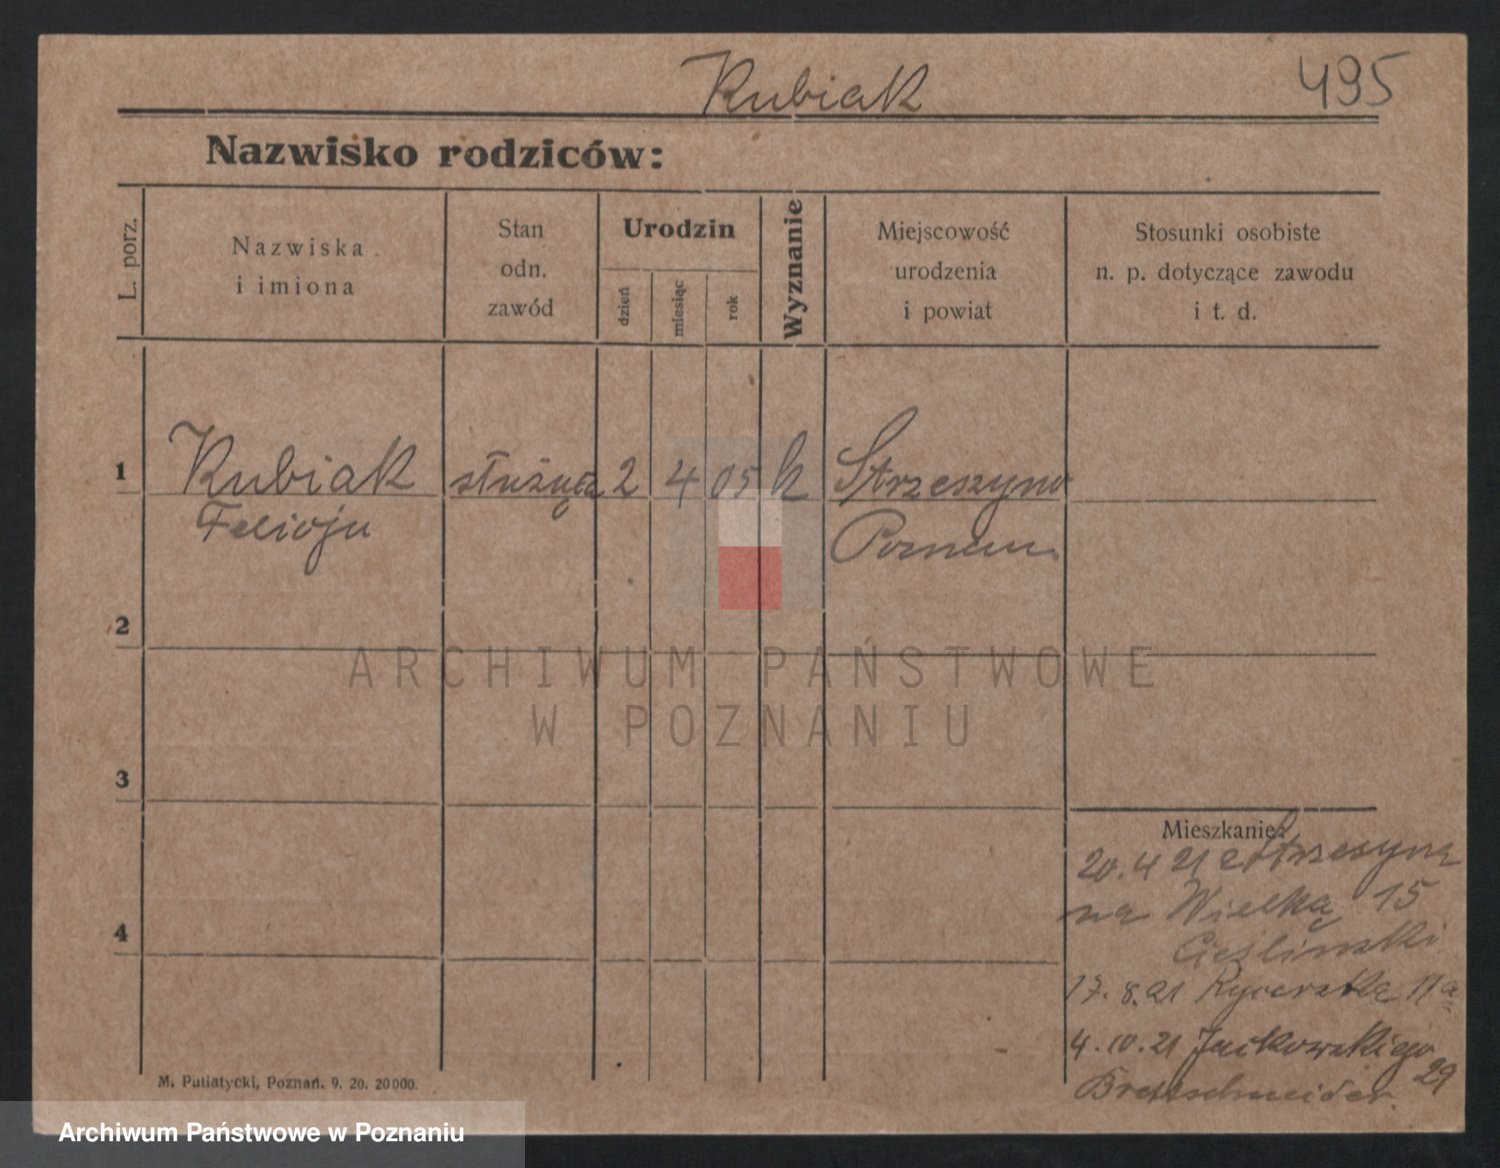 Kubiak 495
Nazwisko rodziców:
L. porz.
Nazwiska
i imiona
Stan
odn.
zawód
Urodzin
dzień
miesiąc
rok
Wyznanie
Miejscowość
urodzenia
i powiat
Stosunki osobiste
n. p. dotyczące zawodu
i t. d.
1 Kubiak służąca 2 4 05 k Strzeszyno
Felicja Poznań
2
ARCHIWUM PAŃSTWOWE
W POZNANIU
3
4
Mieszkanie:
20.4 21 Strzeszyna
na Wielką 15
Cieśliński
17.8.21 Rycerską 11a
4.10.21 Jackowskiego
29
Bretschneider
M. Putiatycki, Poznań. 9. 20. 20000.
Archiwum Państwowe w Poznaniu